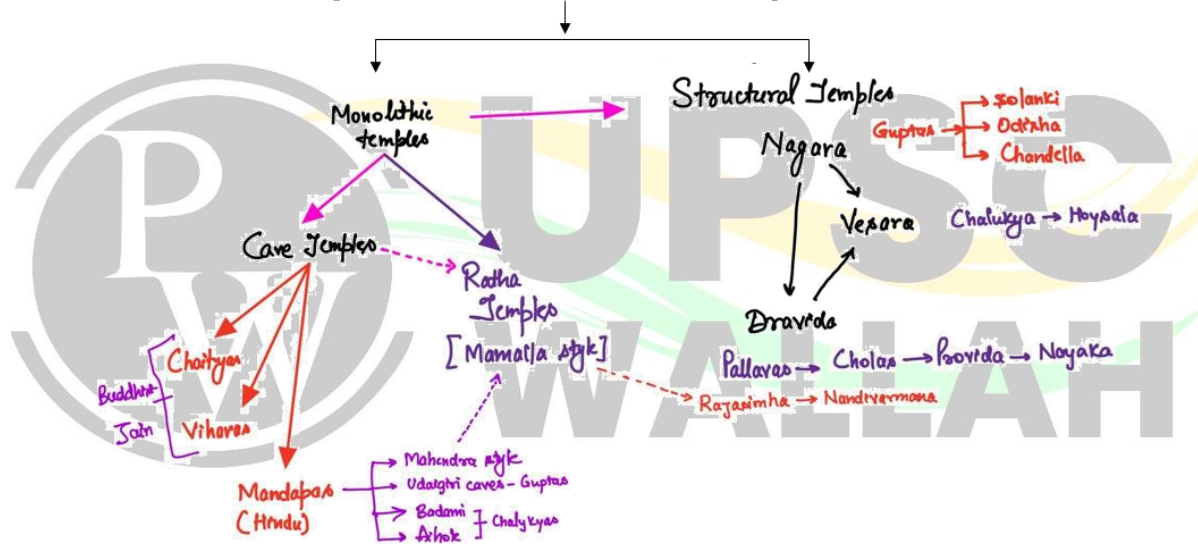 Monolithic
temples
Structural Temples
Guptas → Solanki
Odisha
Chandella
Nagara
Vesara
Chalukya → Hoysala
Dravida
Pallavas → Cholas → Provida → Nayaka
Rajasimha → Nandivarmana
Cave Temples
Ratha
Temples
[Mamalla style]
Chaityas
Buddhist
Jain
Viharas
Mandapas
(Hindu)
Mahendra style
Udaigiri caves - Guptas
Badami
Aihole
Chalykyas
PW
UPSC
WALLAH